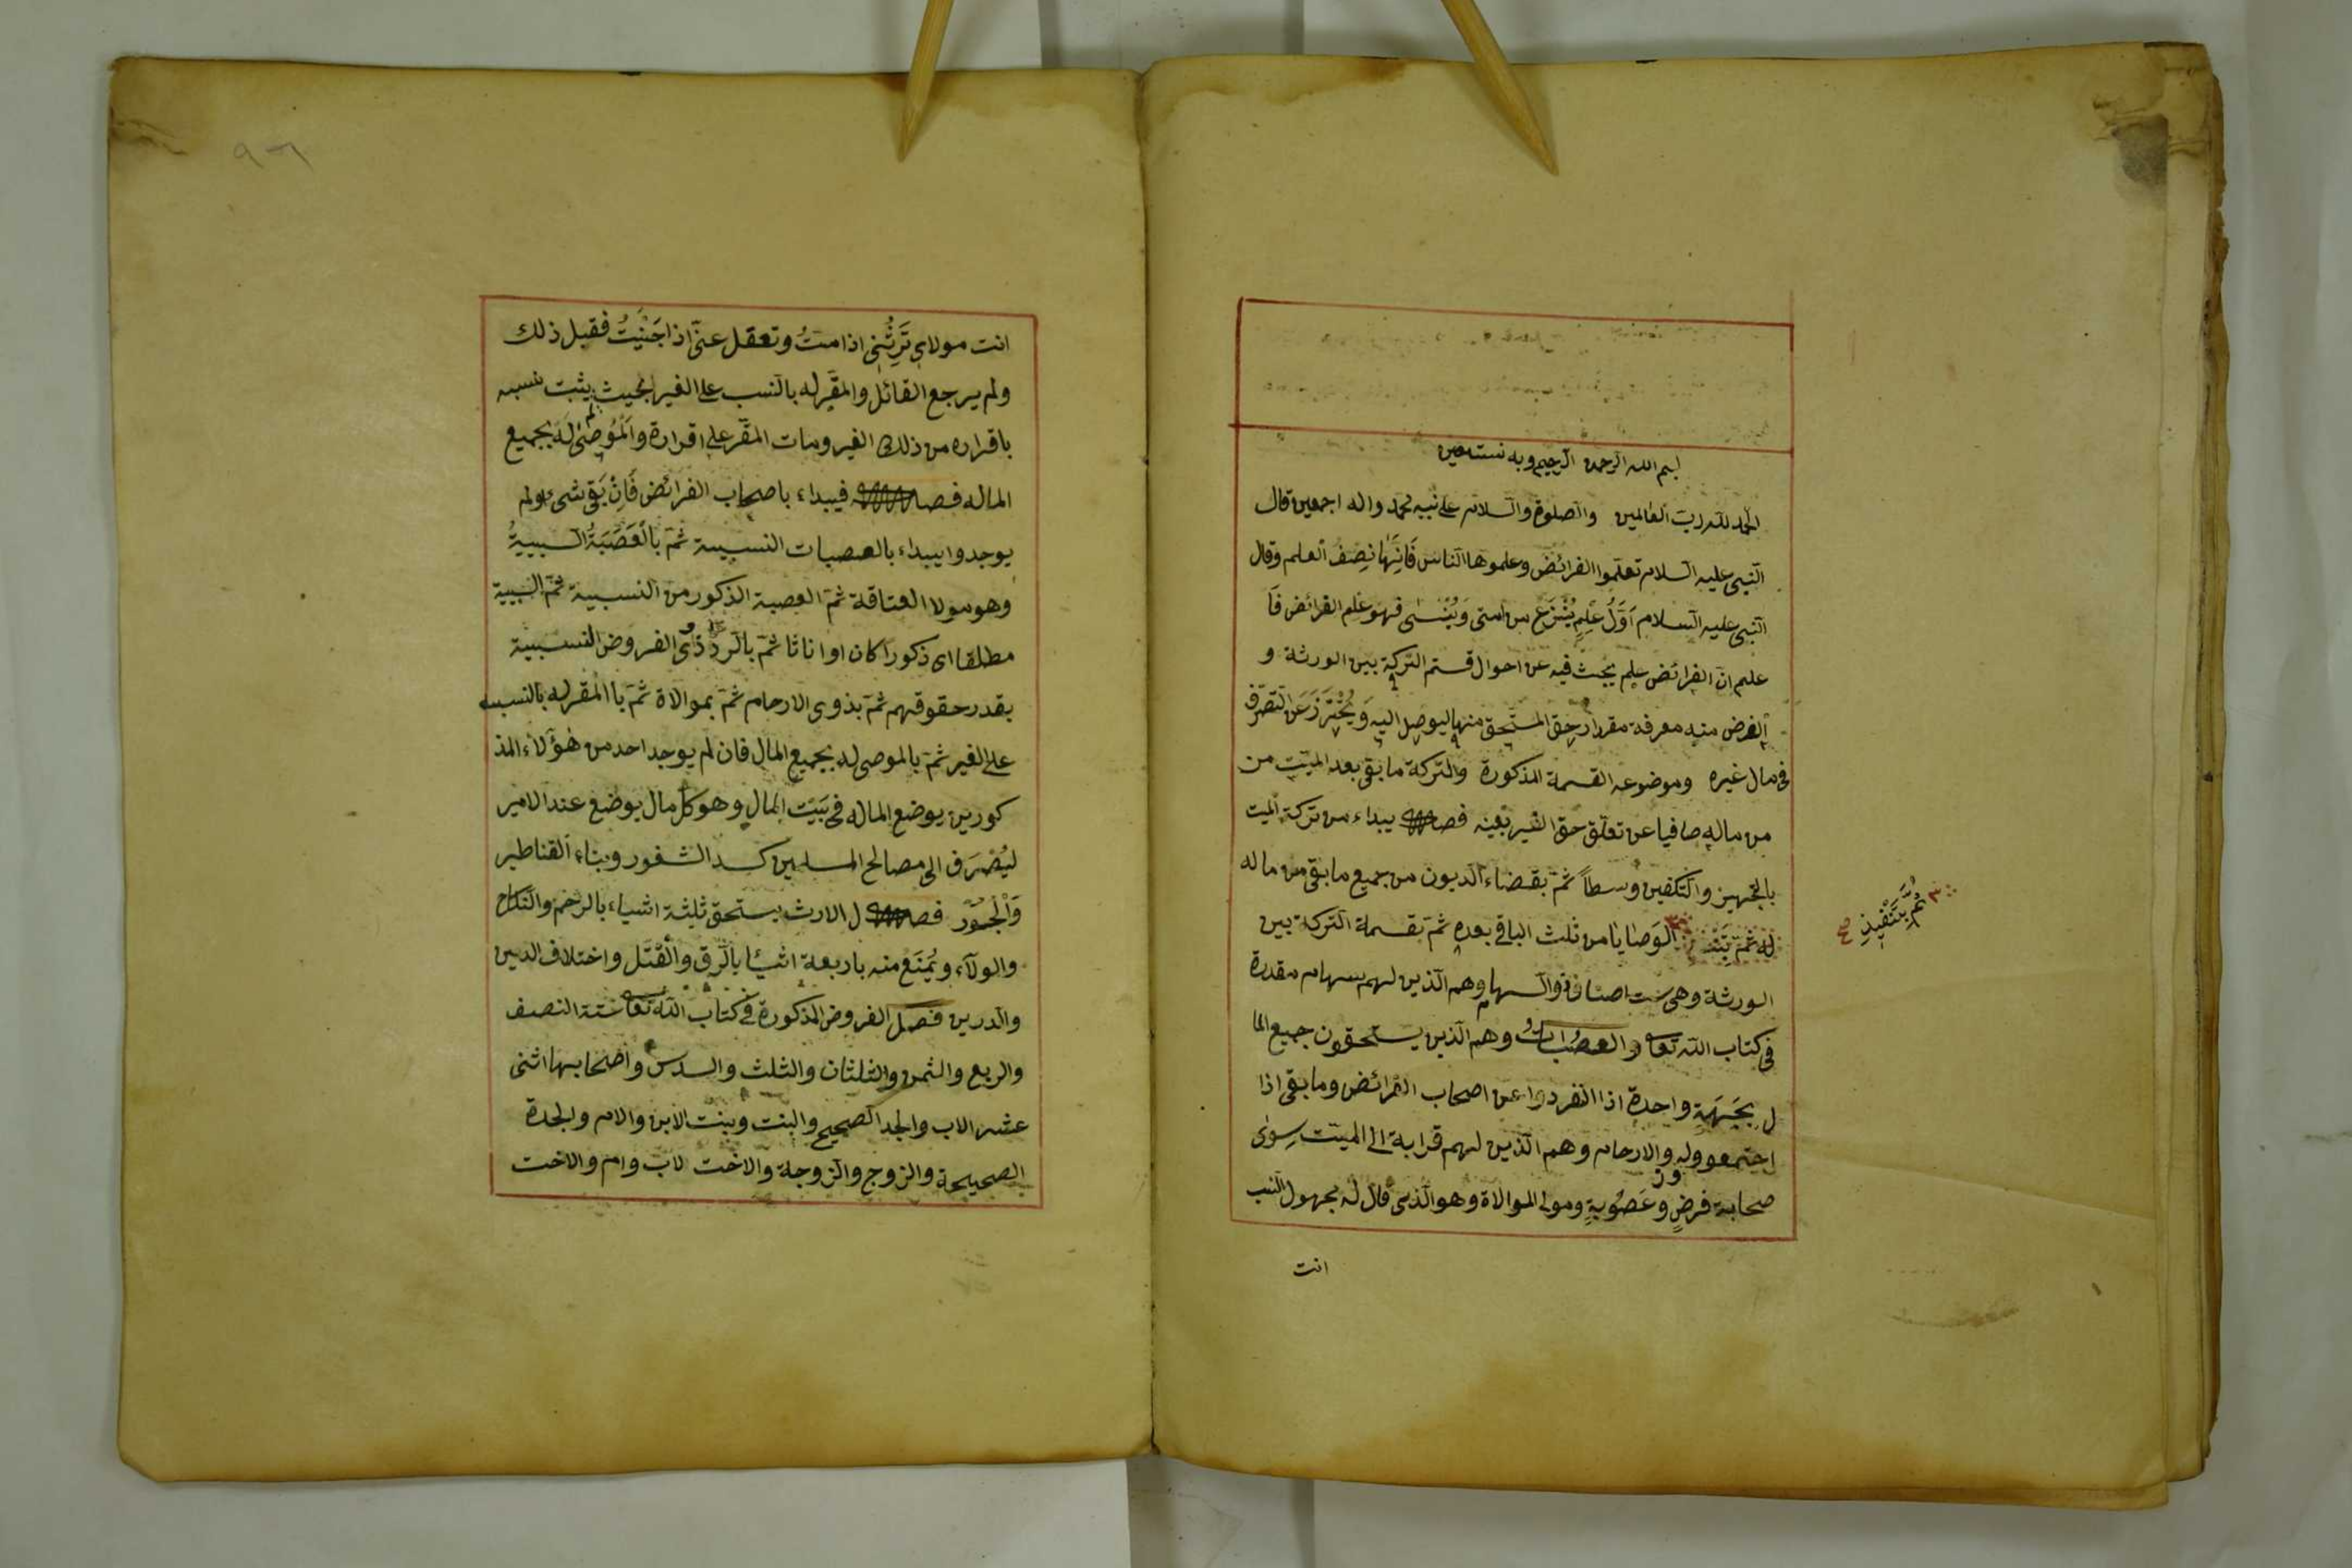 بسم الله الرحمن الرحيم وبه نستعين
الحمد لله رب العالمين والصلوة والسلام على نبيه محمد واله اجمعين قال
النبي عليه السلام تعلموا الفرائض وعلموها الناس فَاِنَّهَا نِصْفُ العلم وقال
النبي عليه السلام اَوَّلُ عِلْمٍ يُنْتَزَعُ من امتى وَيُنْسٰى فهو علم الفرائض فَا
علم ان الفرائض علم يبحث فيه عن احوال قسم التركة بين الورثة و
الغرض منه معرفة مقدار حق المستحق منها ليوصل اليه وَيُحْتَرَزَ عَنِ التصرف
فى مال غيره وموضوعه القسمة المذكورة والتركة ما بقى بعد الميت من
من ماله صافيا عن تعلق حق الغير بعينه فصل يبداء من تركة الميت
بالتجهيز والتكفين وسطاً ثم بقضاء الديون من جميع ما بقى من ماله
له ثم الوَصَايَا من ثلث الباقى بعده ثم بقسمة التركة بين
ثُمَّ بِتَنْفِيذِ صح
الورثة وهى ست اصناف ذوالسهام وهم الذين لهم سهام مقدرة
فى كتاب الله تعا والعصبات وهم الذين يستحقون جميع الما
ل بجَهَةٍ واحدة اذا انفردوا عن اصحاب الفرائض وما بقى اذا
اجتمعوا وله والارحام وهم الذين لهم قرابة الى الميت سِوٰى
صحابة فرضٍ وعَصُوبةٍ ومولى الموالاة وهو الذى قال له مجهول النسب
انت
انت مولاى تَرِثُنِى اذا متُ وتعقل عنى اذا جَنَيْتُ فقبل ذلك
ولم يرجع القائل والمقر له بالنسب على الغير بحيث لم يثبت نسبه
باقراره من ذلك الغير ومات المقر على اقراره والمُوصٰى لَه بجميع
الماله فصل فيبداء باصحاب الفرائض فَاِنْ بَقِىَ شىء اولم
يوجدوا يبداء بالعصبات النسبية ثم بالْعَصَبَةُ السببيةُ
وهو مولا العتاقة ثم العصبة الذكور من النسبية ثم السببية
مطلقا اى ذكورا كان او اناثا ثم بالرد ذوى الفروض النسبية
بقدر حقوقهم ثم بذوى الارحام ثم بموالاة ثم با المقر له بالنسب
على الغير ثم بالموصى له بجميع المال فان لم يوجد احد من هٰؤلاء المذ
كورين يوضع الماله فى بَيْت المال وهو كل مال يوضع عند الامير
ليُصْرَف الى مصالح المسلمين كسد الثغور وبناء القناطير
وَالْجُسُور فصل الارث يستحق بثلثة اشياء بالرحم والنكاح
والولاء ويُمنَع منه باربعة اشياء بالرق والقَتَل واختلاف الدين
والدرين فصل الفروض المذكورة فى كتاب الله تعا ستة النصف
والربع والثمن والثلثان والثلث والسدس واصحابها اثنى
عشر الاب والجد الصحيح والبنت وبنت الابن والام والجدة
الصحيحة والزوج والزوجة والاخت لاب وام والاخت